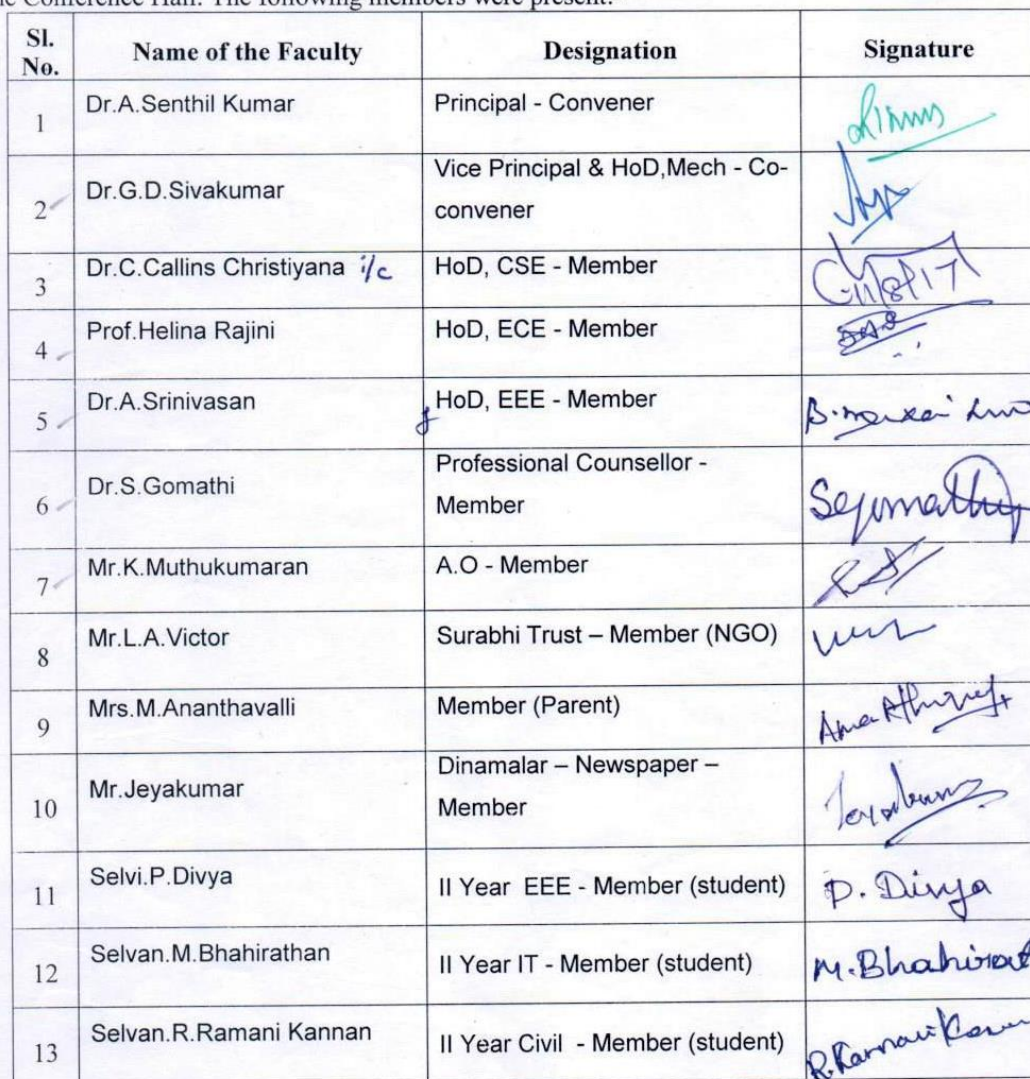 ne Conference Hall. The following members were present:
Sl. No. Name of the Faculty Designation Signature
1 Dr.A.Senthil Kumar Principal - Convener
2 Dr.G.D.Sivakumar Vice Principal & HoD,Mech - Co-
convener
3 Dr.C.Callins Christiyana i/c HoD, CSE - Member
4 Prof.Helina Rajini HoD, ECE - Member
5 Dr.A.Srinivasan HoD, EEE - Member
6 Dr.S.Gomathi Professional Counsellor -
Member
7 Mr.K.Muthukumaran A.O - Member
8 Mr.L.A.Victor Surabhi Trust – Member (NGO)
9 Mrs.M.Ananthavalli Member (Parent)
10 Mr.Jeyakumar Dinamalar – Newspaper –
Member
11 Selvi.P.Divya II Year EEE - Member (student) P. Divya
12 Selvan.M.Bhahirathan II Year IT - Member (student) M.Bhahirat
13 Selvan.R.Ramani Kannan II Year Civil - Member (student)